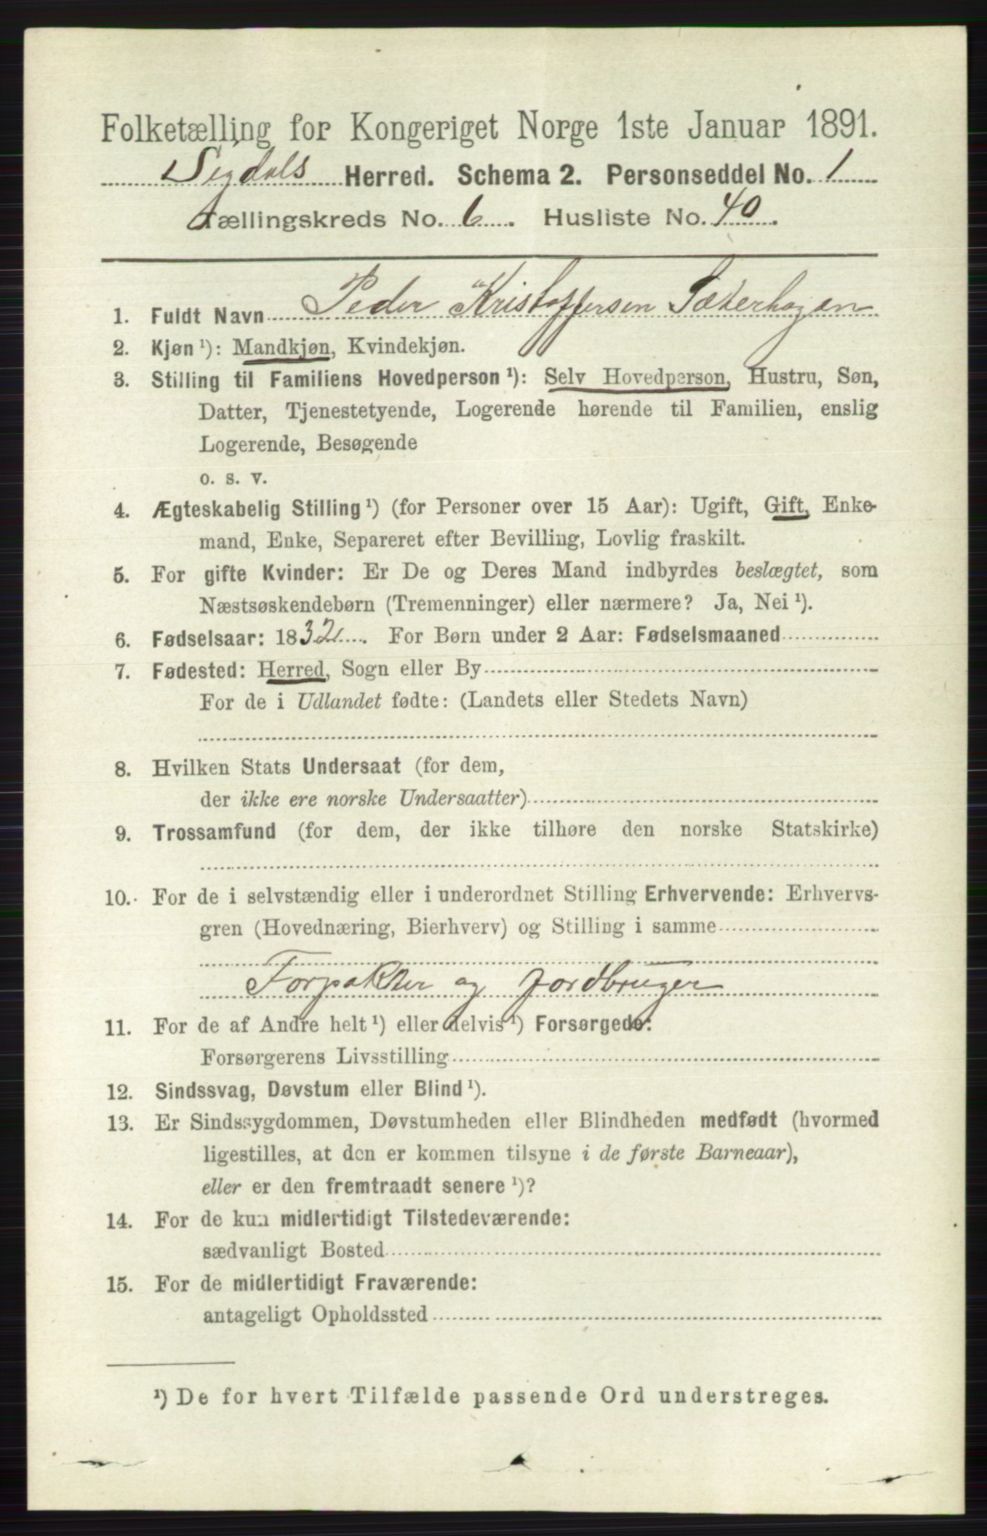 Folketælling for Kongeriget Norge 1ste Januar 1891.
Sigdals Herred. Schema 2. Personseddel No. 1
Tællingskreds No. 6. Husliste No. 40.
1. Fuldt Navn Peder Kristoffersen Sæterhagen
2. Kjøn ¹): Mandkjøn, Kvindekjøn.
3. Stilling til Familiens Hovedperson ¹): Selv Hovedperson, Hustru, Søn,
Datter, Tjenestetyende, Logerende hørende til Familien, enslig
Logerende, Besøgende
o. s. v.
4. Ægteskabelig Stilling ¹) (for Personer over 15 Aar): Ugift, Gift, Enke-
mand, Enke, Separeret efter Bevilling, Lovlig fraskilt.
5. For gifte Kvinder: Er De og Deres Mand indbyrdes beslægtet, som
Næstsøskendebørn (Tremenninger) eller nærmere? Ja, Nei ¹).
6. Fødselsaar: 1832. For Børn under 2 Aar: Fødselsmaaned
7. Fødested: Herred, Sogn eller By
For de i Udlandet fødte: (Landets eller Stedets Navn)
8. Hvilken Stats Undersaat (for dem,
der ikke ere norske Undersaatter)
9. Trossamfund (for dem, der ikke tilhøre den norske Statskirke)
10. For de i selvstændig eller i underordnet Stilling Erhvervende: Erhvervs-
gren (Hovednæring, Bierhverv) og Stilling i samme
Forpakter og jordbruger
11. For de af Andre helt ¹) eller delvis ¹) Forsørgede:
Forsørgerens Livsstilling
12. Sindssvag, Døvstum eller Blind ¹).
13. Er Sindssygdommen, Døvstumheden eller Blindheden medfødt (hvormed
ligestilles, at den er kommen tilsyne i de første Barneaar),
eller er den fremtraadt senere ¹)?
14. For de kun midlertidigt Tilstedeværende:
sædvanligt Bosted
15. For de midlertidigt Fraværende:
antageligt Opholdssted
¹) De for hvert Tilfælde passende Ord understreges.